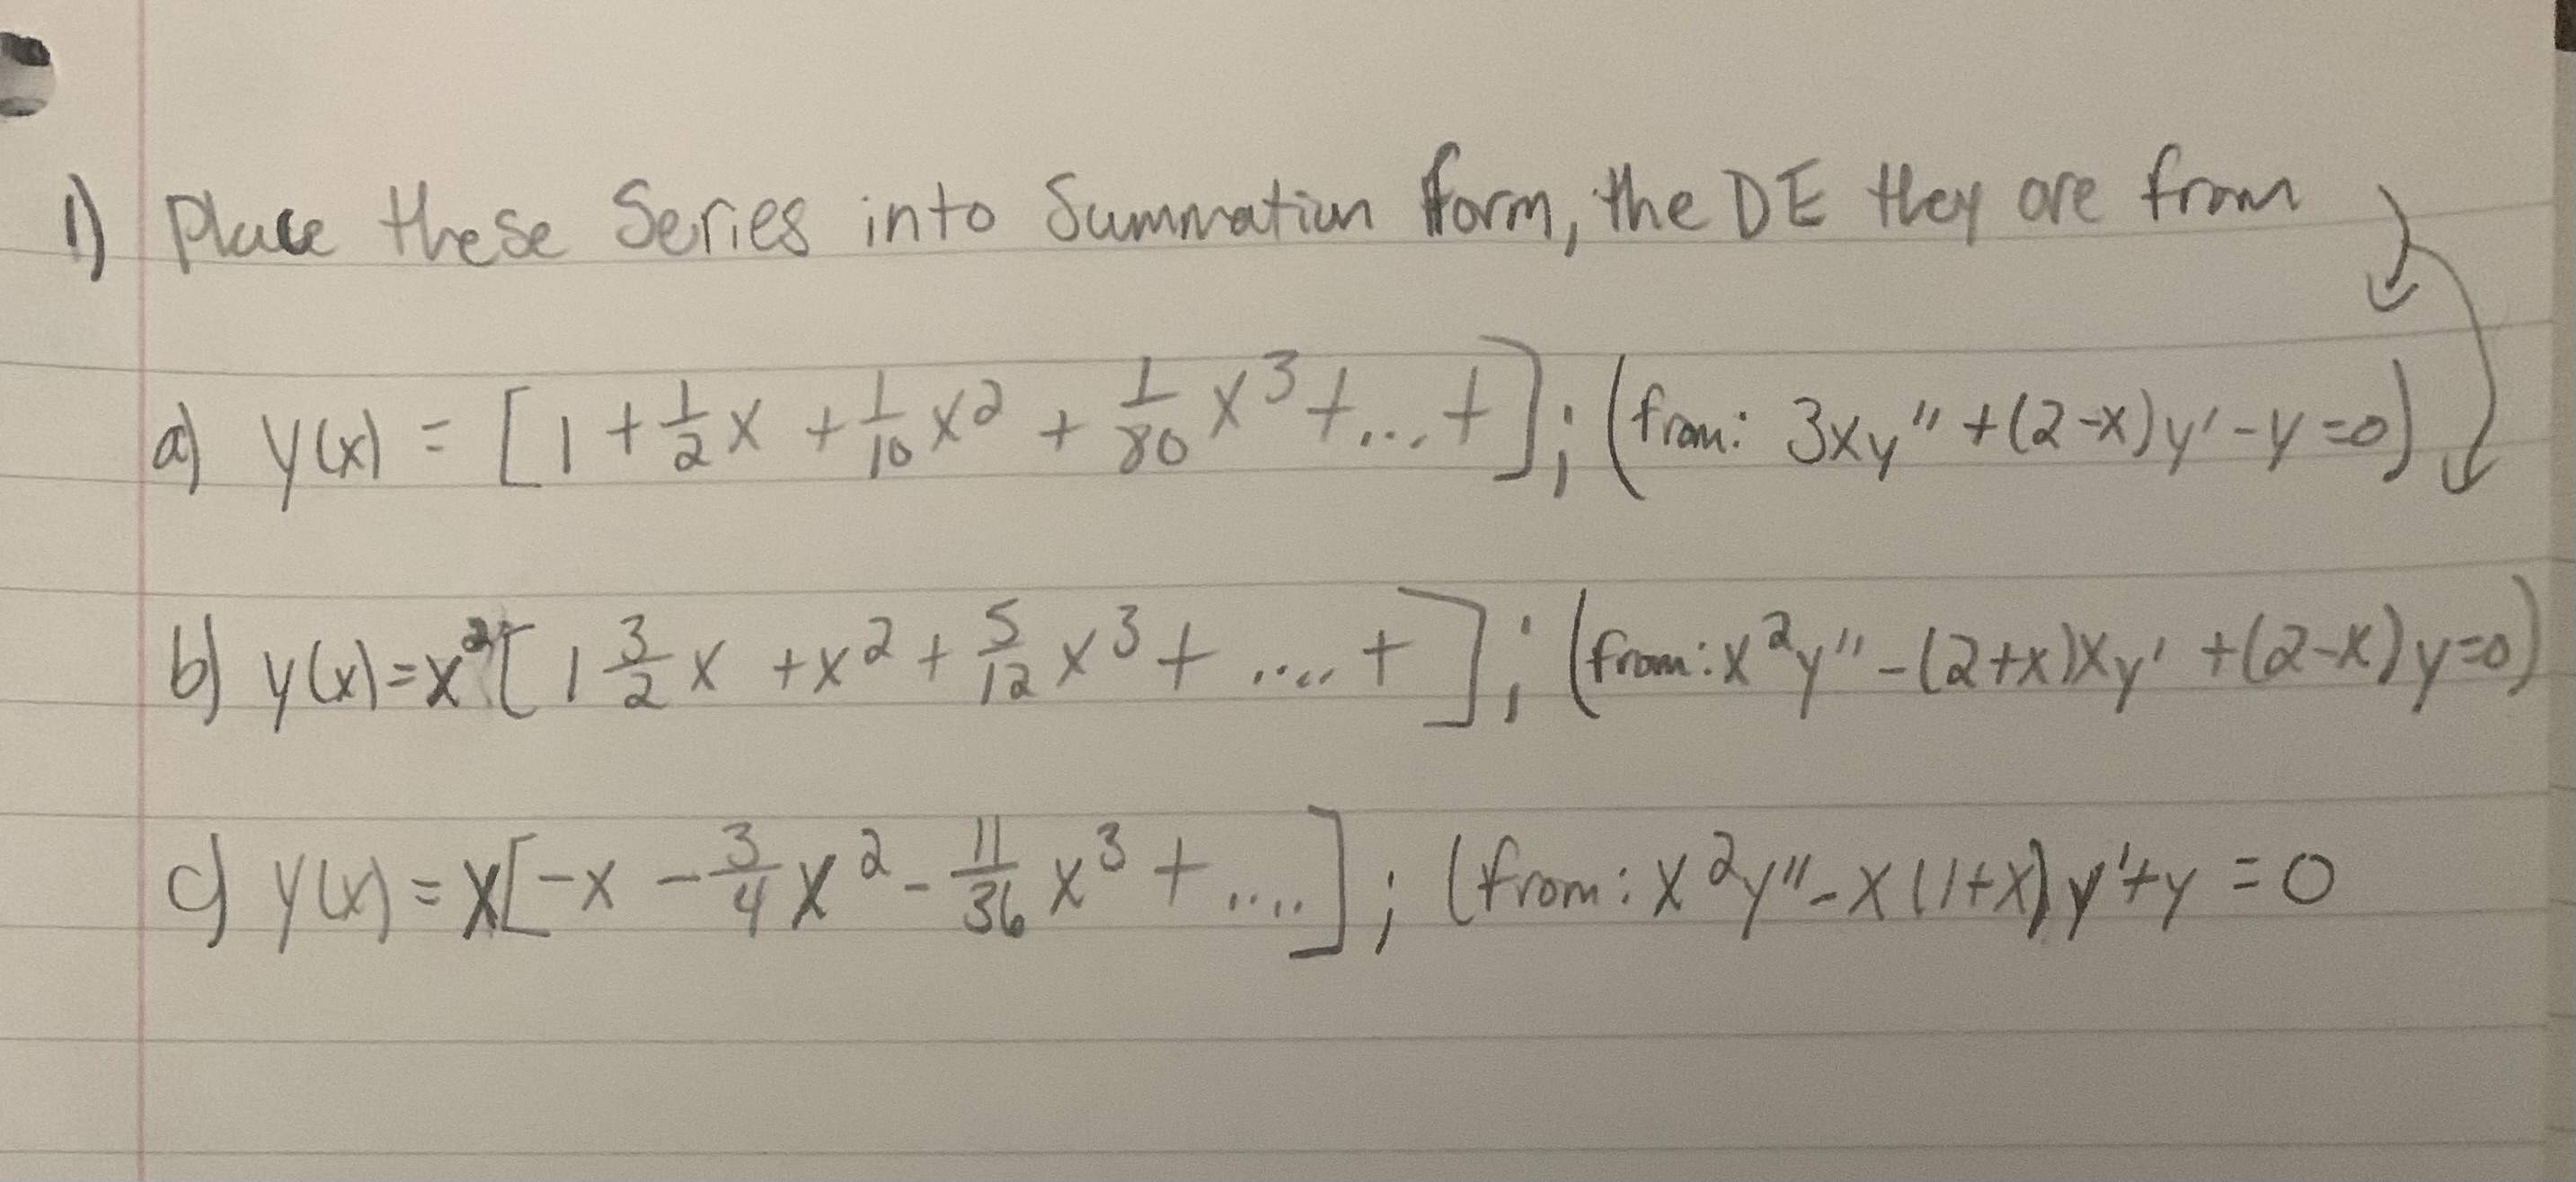 1) Place these Series into Summation form, the DE they are from
a) y(x) = [1 + 1/2 x + 1/10 x² + 1/80 x³ + ... + ]; (from: 3xy'' + (2-x)y' - y = 0)
b) y(x) = x² [1 3/2 x + x² + 5/12 x³ + .... + ]; (from: x²y'' - (2+x)xy' + (2-x)y = 0)
c) y(x) = x[-x - 3/4 x² - 11/36 x³ + ....]; (from: x²y'' - x(1+x)y' + y = 0